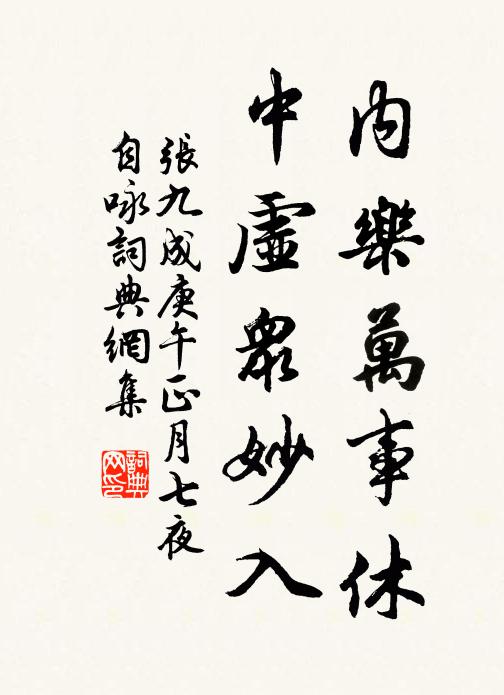 內樂萬事休
中虛眾妙入
張九成庚午正月七夜
自咏詞典網集
詞典
网印